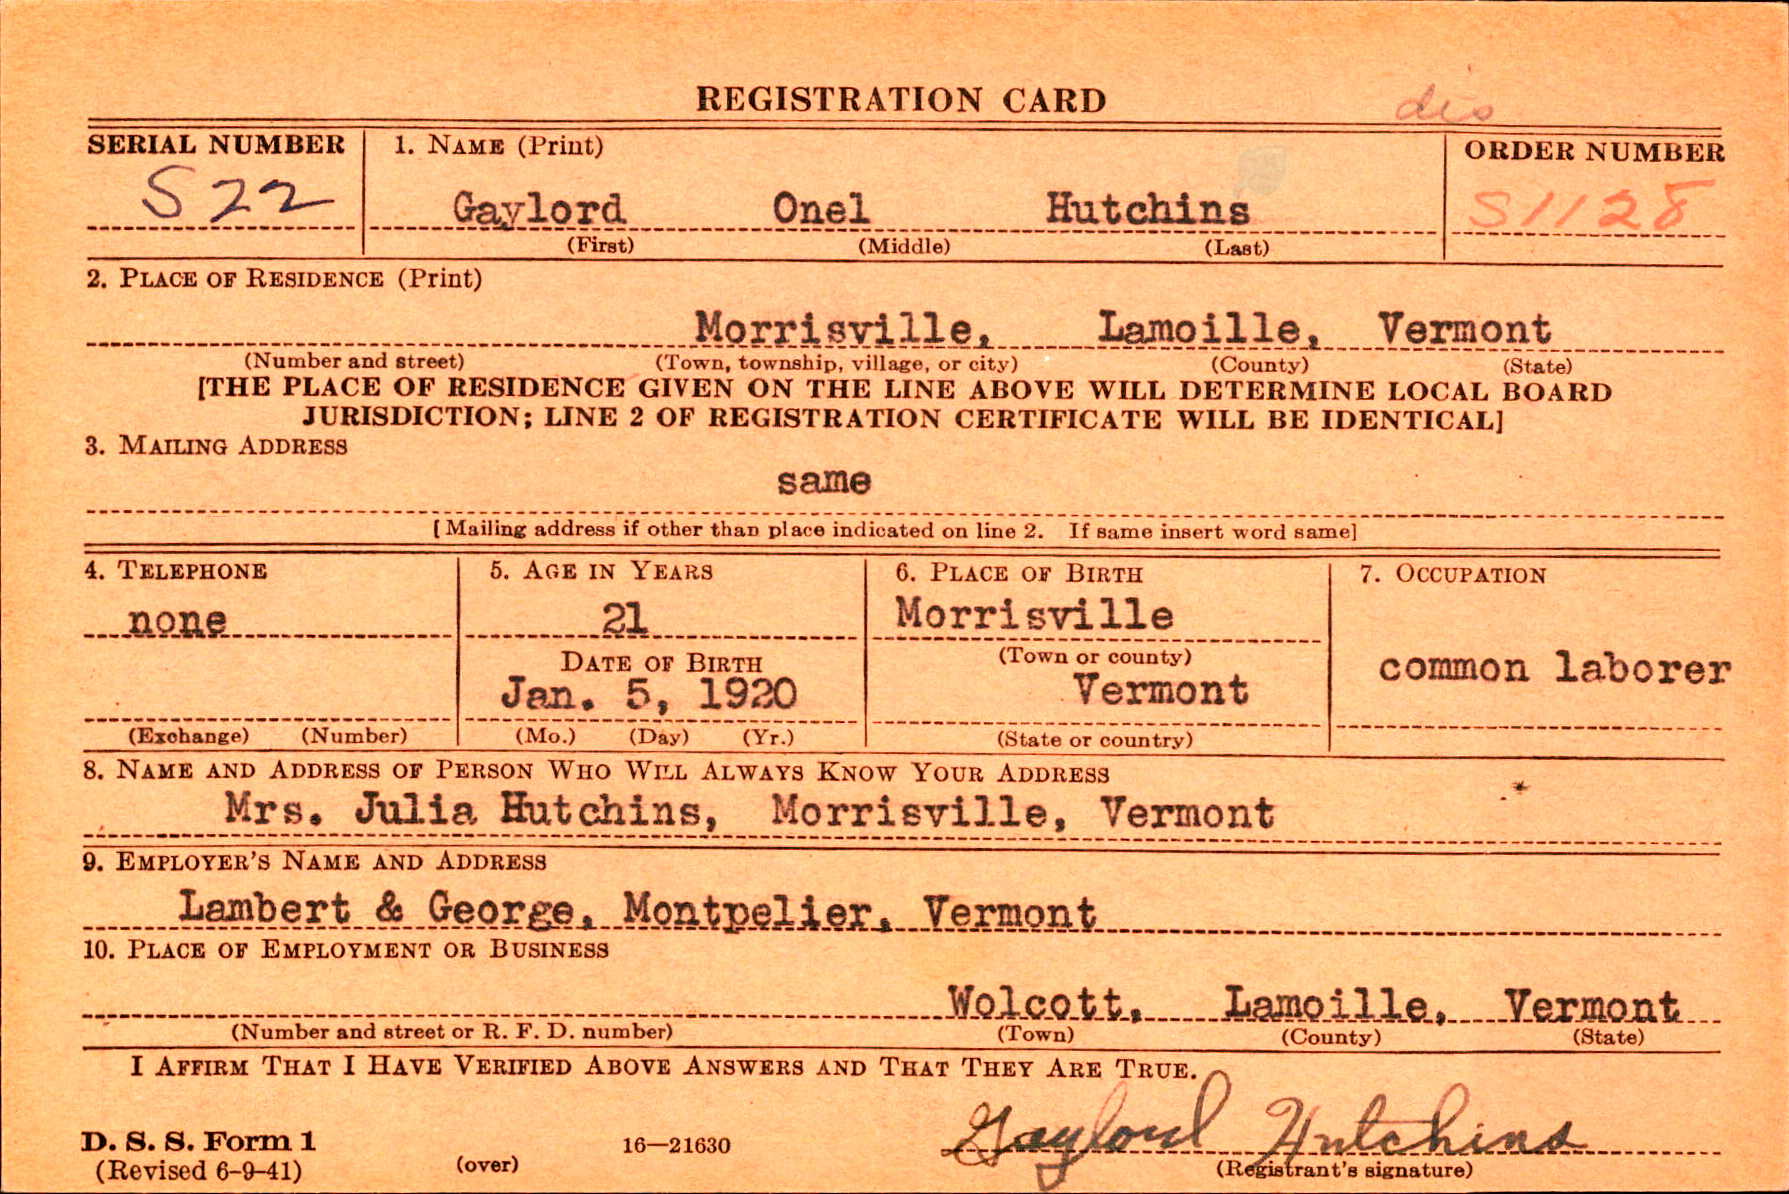 dis
REGISTRATION CARD
SERIAL NUMBER 1. NAME (Print) ORDER NUMBER
S22 Gaylord Onel Hutchins S1128
(First) (Middle) (Last)
2. PLACE OF RESIDENCE (Print)
Morrisville, Lamoille, Vermont
(Number and street) (Town, township, village, or city) (County) (State)
[THE PLACE OF RESIDENCE GIVEN ON THE LINE ABOVE WILL DETERMINE LOCAL BOARD
JURISDICTION; LINE 2 OF REGISTRATION CERTIFICATE WILL BE IDENTICAL]
3. MAILING ADDRESS
same
[Mailing address if other than place indicated on line 2. If same insert word same]
4. TELEPHONE 5. AGE IN YEARS 6. PLACE OF BIRTH 7. OCCUPATION
none 21 Morrisville
DATE OF BIRTH (Town or county) common laborer
Jan. 5, 1920 Vermont
(Exchange) (Number) (Mo.) (Day) (Yr.) (State or country)
8. NAME AND ADDRESS OF PERSON WHO WILL ALWAYS KNOW YOUR ADDRESS
Mrs. Julia Hutchins, Morrisville, Vermont
9. EMPLOYER'S NAME AND ADDRESS
Lambert & George, Montpelier, Vermont
10. PLACE OF EMPLOYMENT OR BUSINESS
Wolcott, Lamoille, Vermont
(Number and street or R. F. D. number) (Town) (County) (State)
I AFFIRM THAT I HAVE VERIFIED ABOVE ANSWERS AND THAT THEY ARE TRUE.
D. S. S. Form 1 16—21630 Gaylord Hutchins
(Revised 6-9-41) (over) (Registrant's signature)